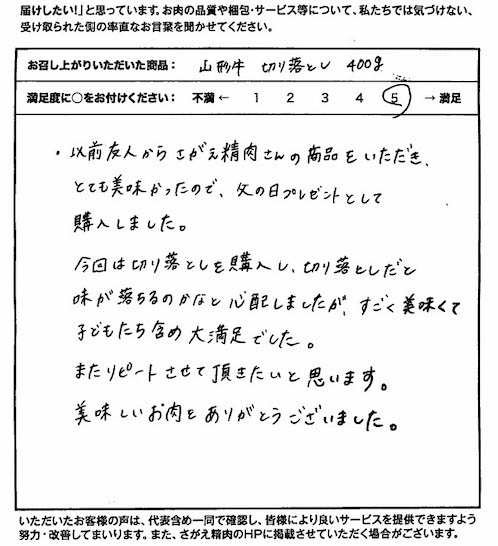 届けしたい!」と思っています。お肉の品質や梱包・サービス等について、私たちでは気づけない、
受け取られた側の率直なお言葉を聞かせてください。
お召し上がりいただいた商品: 山形牛 切り落とし 400g
満足度に○をお付けください: 不満 ← 1 2 3 4 5 → 満足
・以前友人からさがえ精肉さんの商品をいただき、
とても美味かったので、父の日プレゼントとして
購入しました。
今回は切り落としを購入し、切り落としだと
味が落ちるのかなと心配しましたが、すごく美味くて
子どもたち含め大満足でした。
またリピートさせて頂きたいと思います。
美味しいお肉をありがとうございました。
いただいたお客様の声は、代表含め一同で確認し、皆様により良いサービスを提供できますよう
努力・改善してまいります。また、さがえ精肉のHPに掲載させていただく場合がございます。